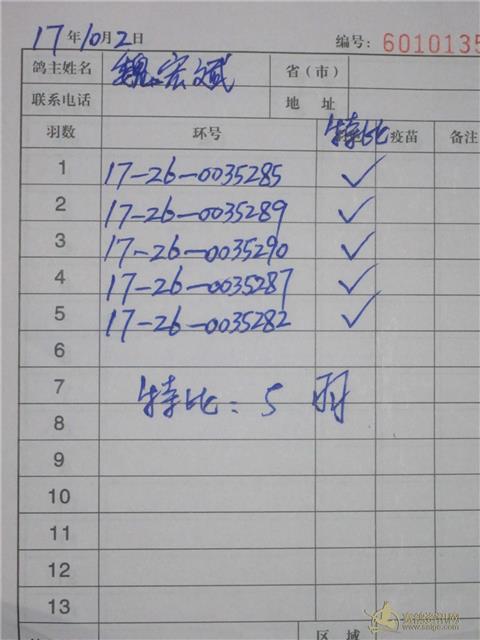 17年10月2日 编号: 6010135
鸽主姓名 魏宏斌 省（市）
联系电话 地 址
羽数 环号 特比 疫苗 备注
1 17-26-0035285 ✓
2 17-26-0035289 ✓
3 17-26-0035290 ✓
4 17-26-0035287 ✓
5 17-26-0035282 ✓
6
7 特比: 5羽
8
9
10
11
12
13
区 域
www.saige.com